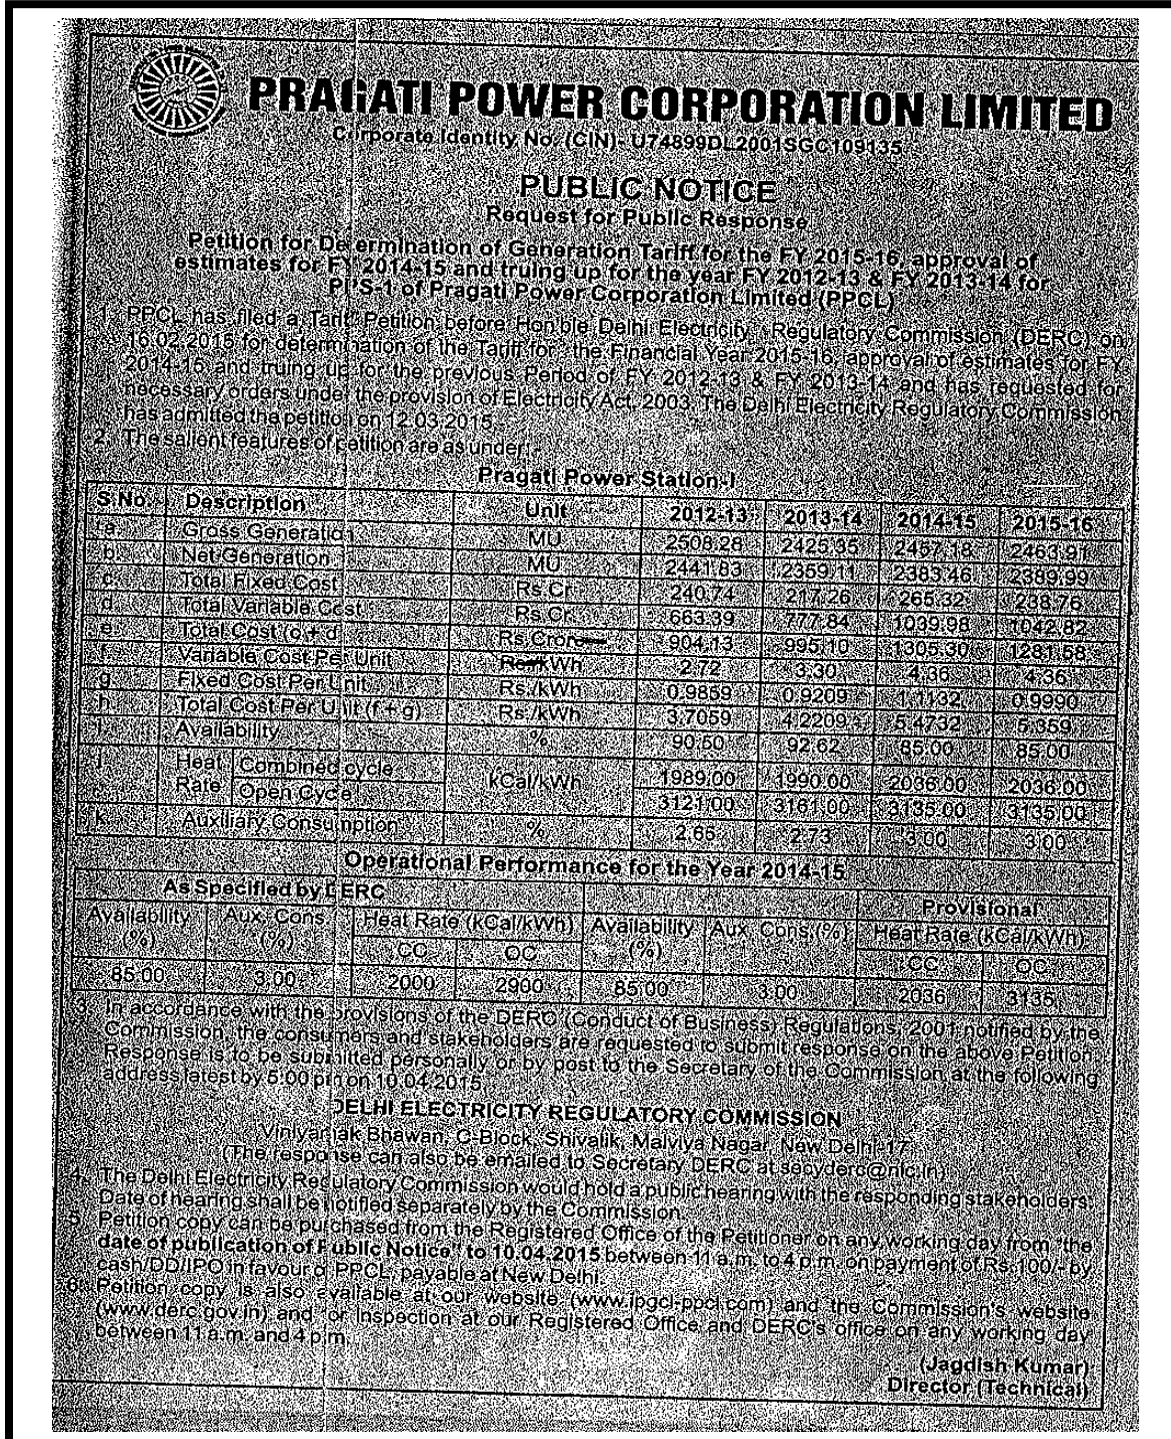 PRAGATI POWER CORPORATION LIMITED
Corporate Identity No. (CIN)- U74899DL2001SGC109135
PUBLIC NOTICE
Request for Public Response
Petition for Determination of Generation Tariff for the FY 2015-16, approval of
estimates for FY 2014-15 and truing up for the year FY 2012-13 & FY 2013-14 for
PPS-1 of Pragati Power Corporation Limited (PPCL)
1. PPCL has filed a Tariff Petition before Hon'ble Delhi Electricity Regulatory Commission (DERC) on
16.02.2015 for determination of the Tariff for the Financial Year 2015-16, approval of estimates for FY
2014-15 and truing up for the previous Period of FY 2012-13 & FY 2013-14 and has requested for
necessary orders under the provision of Electricity Act, 2003. The Delhi Electricity Regulatory Commission
has admitted the petition on 12.03.2015.
2. The salient features of petition are as under:-
Pragati Power Station-I
S.No. Description Unit 2012-13 2013-14 2014-15 2015-16
a. Gross Generation MU 2508.28 2425.35 2457.18 2463.91
b. Net Generation MU 2441.83 2359.11 2383.46 2389.99
c. Total Fixed Cost Rs.Cr. 240.74 217.26 265.32 238.76
d. Total Variable Cost Rs.Cr. 663.39 777.84 1039.98 1042.82
e. Total Cost (c + d) Rs.Crore 904.13 995.10 1305.30 1281.58
f. Variable Cost Per Unit kWh 2.72 3.30 4.36 4.36
g. Fixed Cost Per Unit Rs./kWh 0.9859 0.9209 1.1132 0.9990
h. Total Cost Per Unit (f + g) Rs./kWh 3.7059 4.2209 5.4732 5.359
i. Availability % 90.50 92.62 85.00 85.00
j. Heat Rate Combined cycle kCal/kWh 1989.00 1990.00 2036.00 2036.00
Open Cycle 3121.00 3161.00 3135.00 3135.00
k. Auxiliary Consumption % 2.65 2.73 3.00 3.00
Operational Performance for the Year 2014-15
As Specified by DERC Provisional
Availability (%) Aux. Cons. (%) Heat Rate (kCal/kWh) Availability (%) Aux. Cons.(%) Heat Rate (kCal/kWh)
CC OC CC OC
85.00 3.00 2000 2900 85.00 3.00 2036 3135
3. In accordance with the provisions of the DERC (Conduct of Business) Regulations, 2001 notified by the
Commission, the consumers and stakeholders are requested to submit response on the above Petition.
Response is to be submitted personally or by post to the Secretary of the Commission at the following
address latest by 5:00 pm on 10.04.2015.
DELHI ELECTRICITY REGULATORY COMMISSION
Viniyamak Bhawan, C-Block, Shivalik, Malviya Nagar, New Delhi-17
(The response can also be emailed to Secretary DERC at secyderc@nic.in)
4. The Delhi Electricity Regulatory Commission would hold a public hearing with the responding stakeholders.
Date of hearing shall be notified separately by the Commission.
5. Petition copy can be purchased from the Registered Office of the Petitioner on any working day from "the
date of publication of Public Notice" to 10.04.2015 between 11 a.m. to 4 p.m. on payment of Rs.100/- by
cash/DD/IPO in favour of PPCL, payable at New Delhi.
6. Petition copy is also available at our website (www.ipgcl-ppcl.com) and the Commission's website
(www.derc.gov.in) and for Inspection at our Registered Office and DERC's office on any working day
between 11 a.m. and 4 p.m.
(Jagdish Kumar)
Director (Technical)